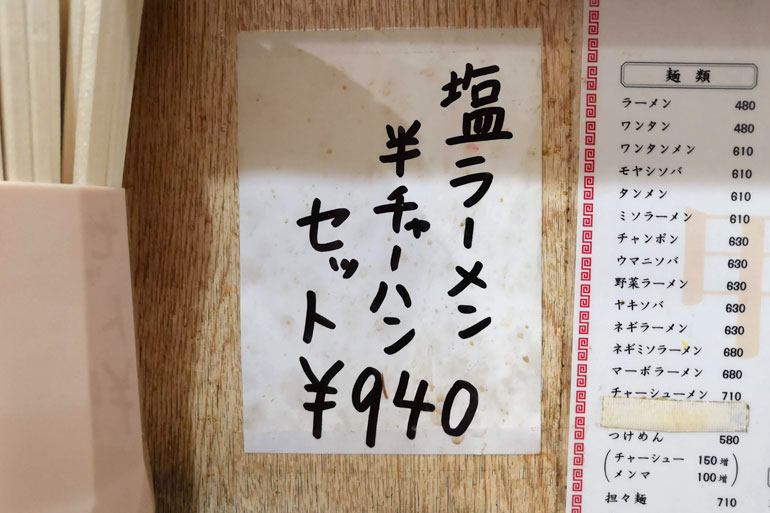 塩ラーメン
半チャーハン
セット
¥940
麺類
ラーメン 480
ワンタン 480
ワンタンメン 610
モヤシソバ 610
タンメン 610
ミソラーメン 610
チャンポン 630
ウマニソバ 630
野菜ラーメン 630
ヤキソバ 630
ネギラーメン 630
ネギミソラーメン 680
マーボラーメン 680
チャーシューメン 710
つけめん 580
(チャーシュー 150増
メンマ 100増)
担々麺 710